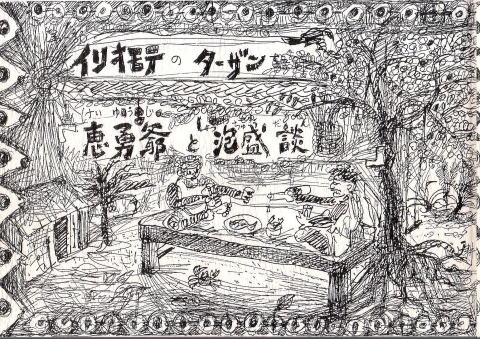 イリオモテのターザン
恵勇爺と泡盛談